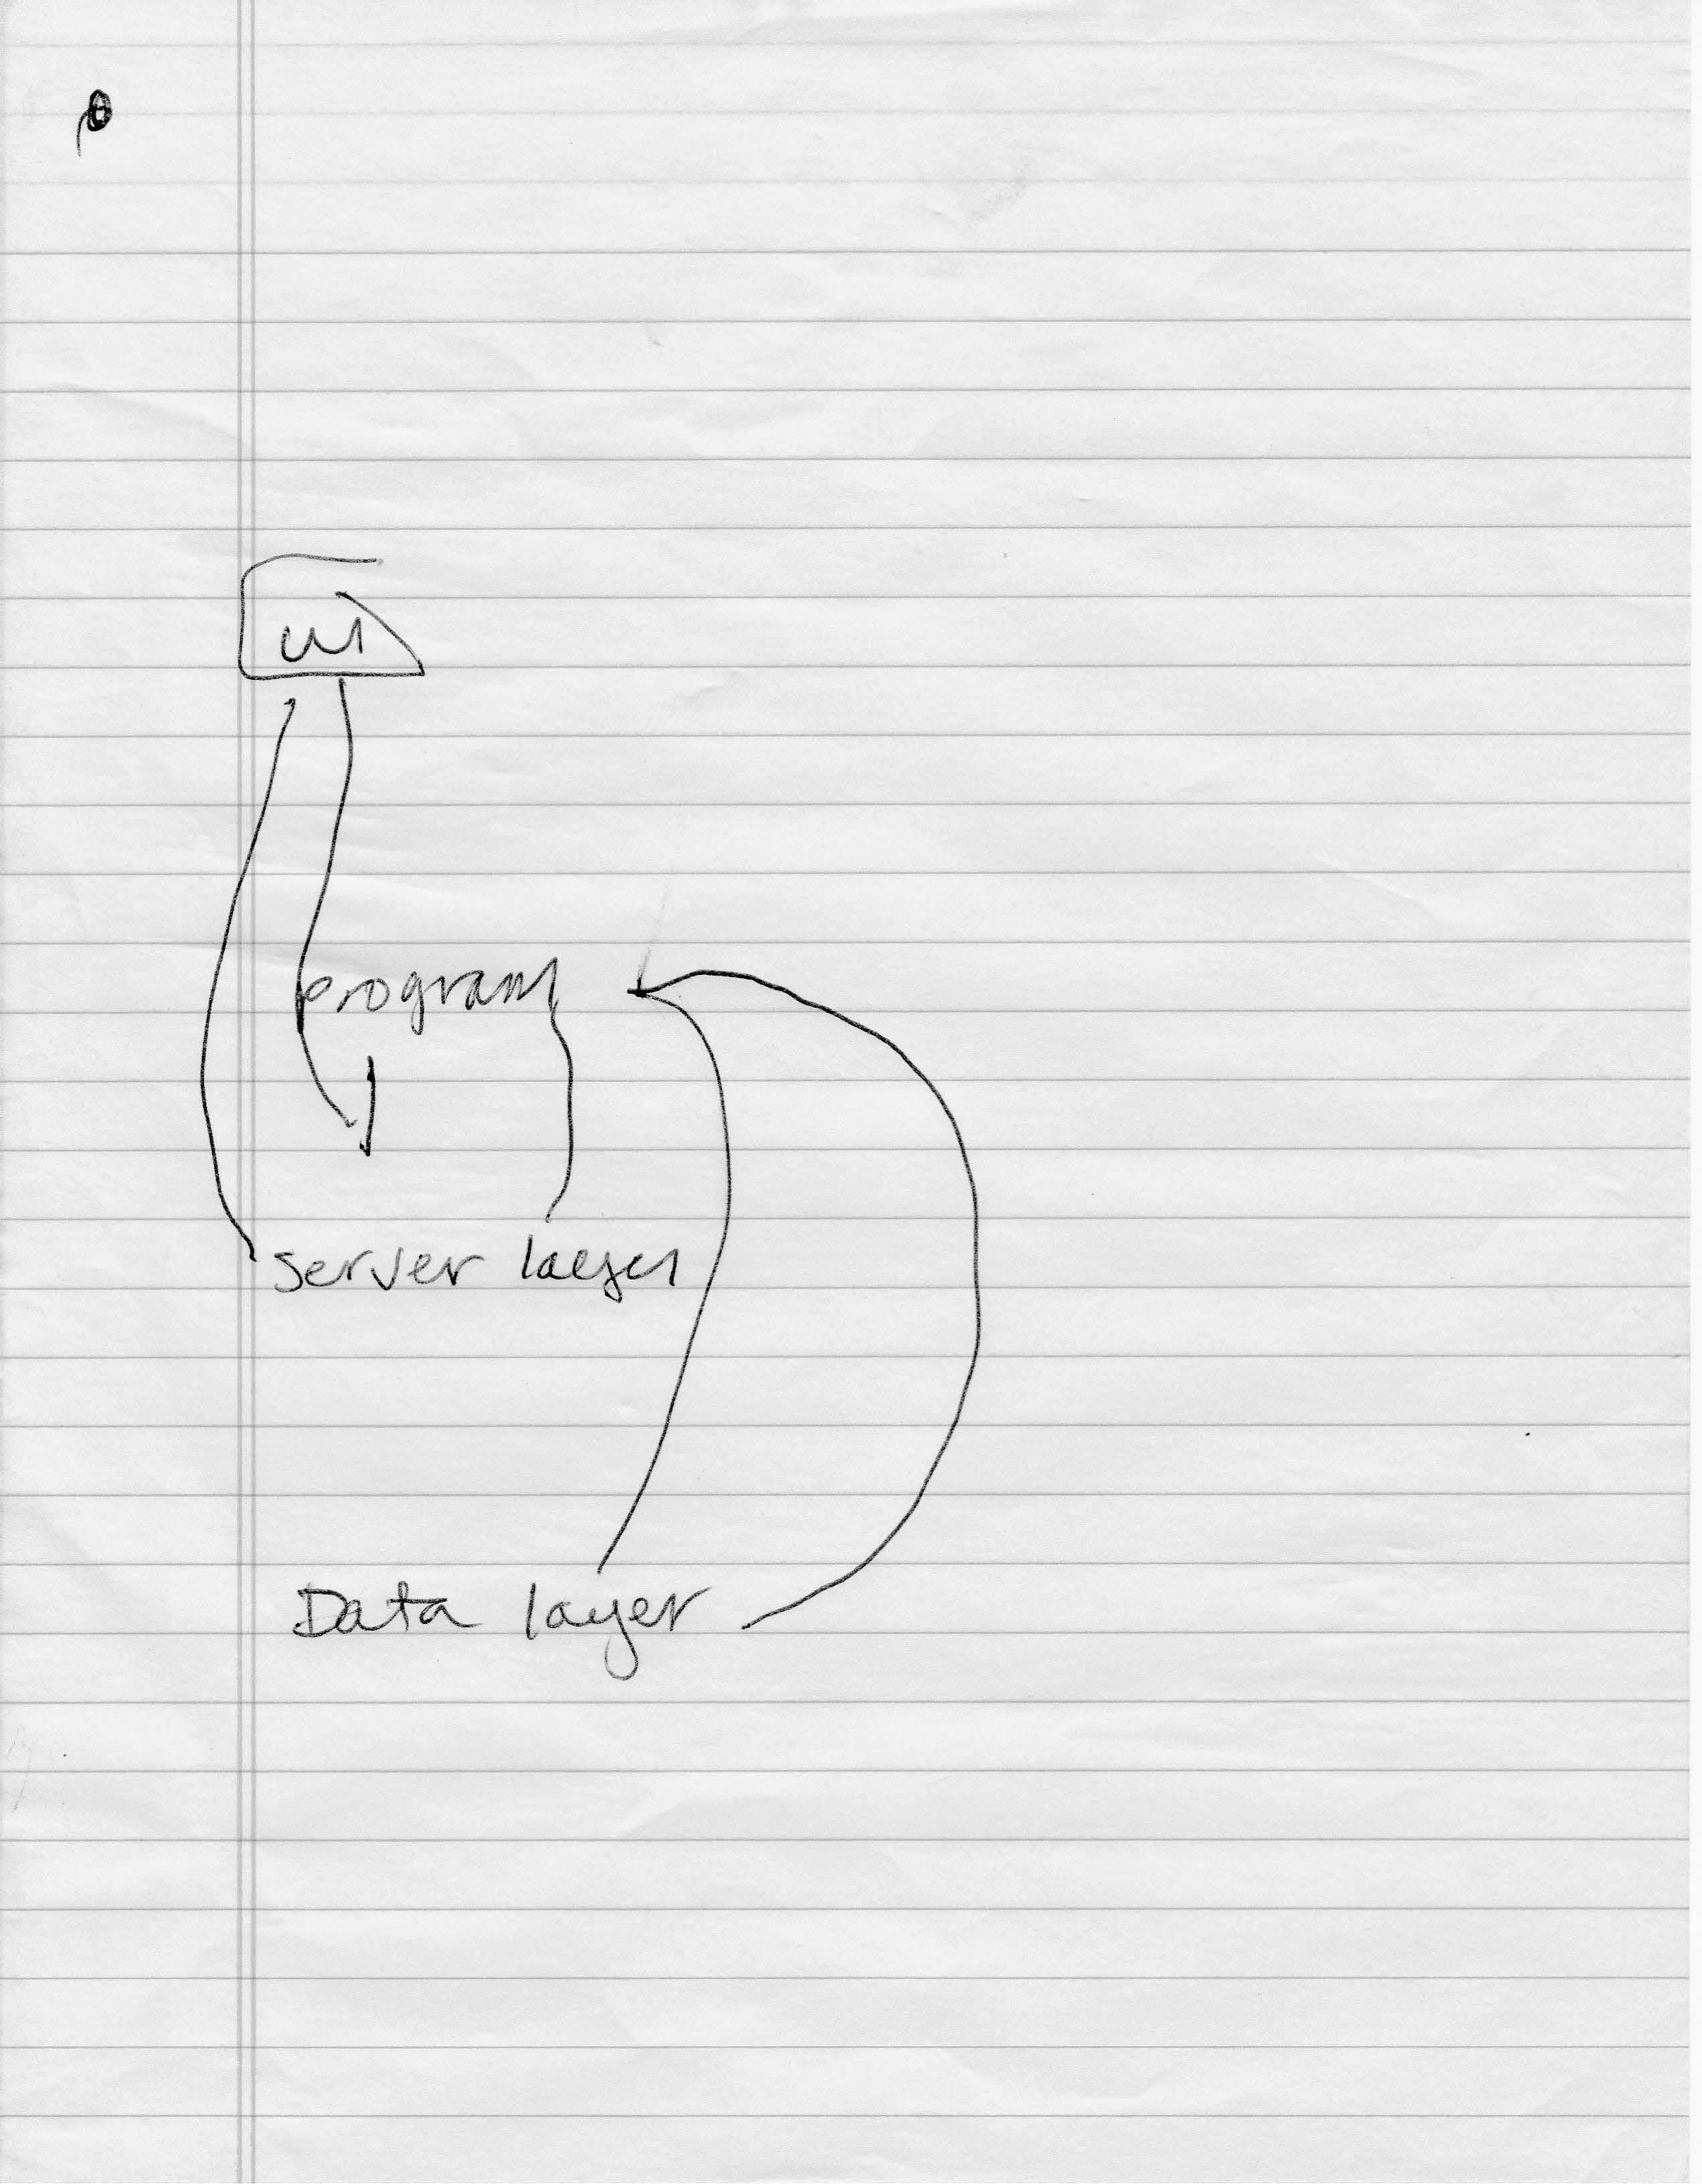 UI
program
server layer
Data layer